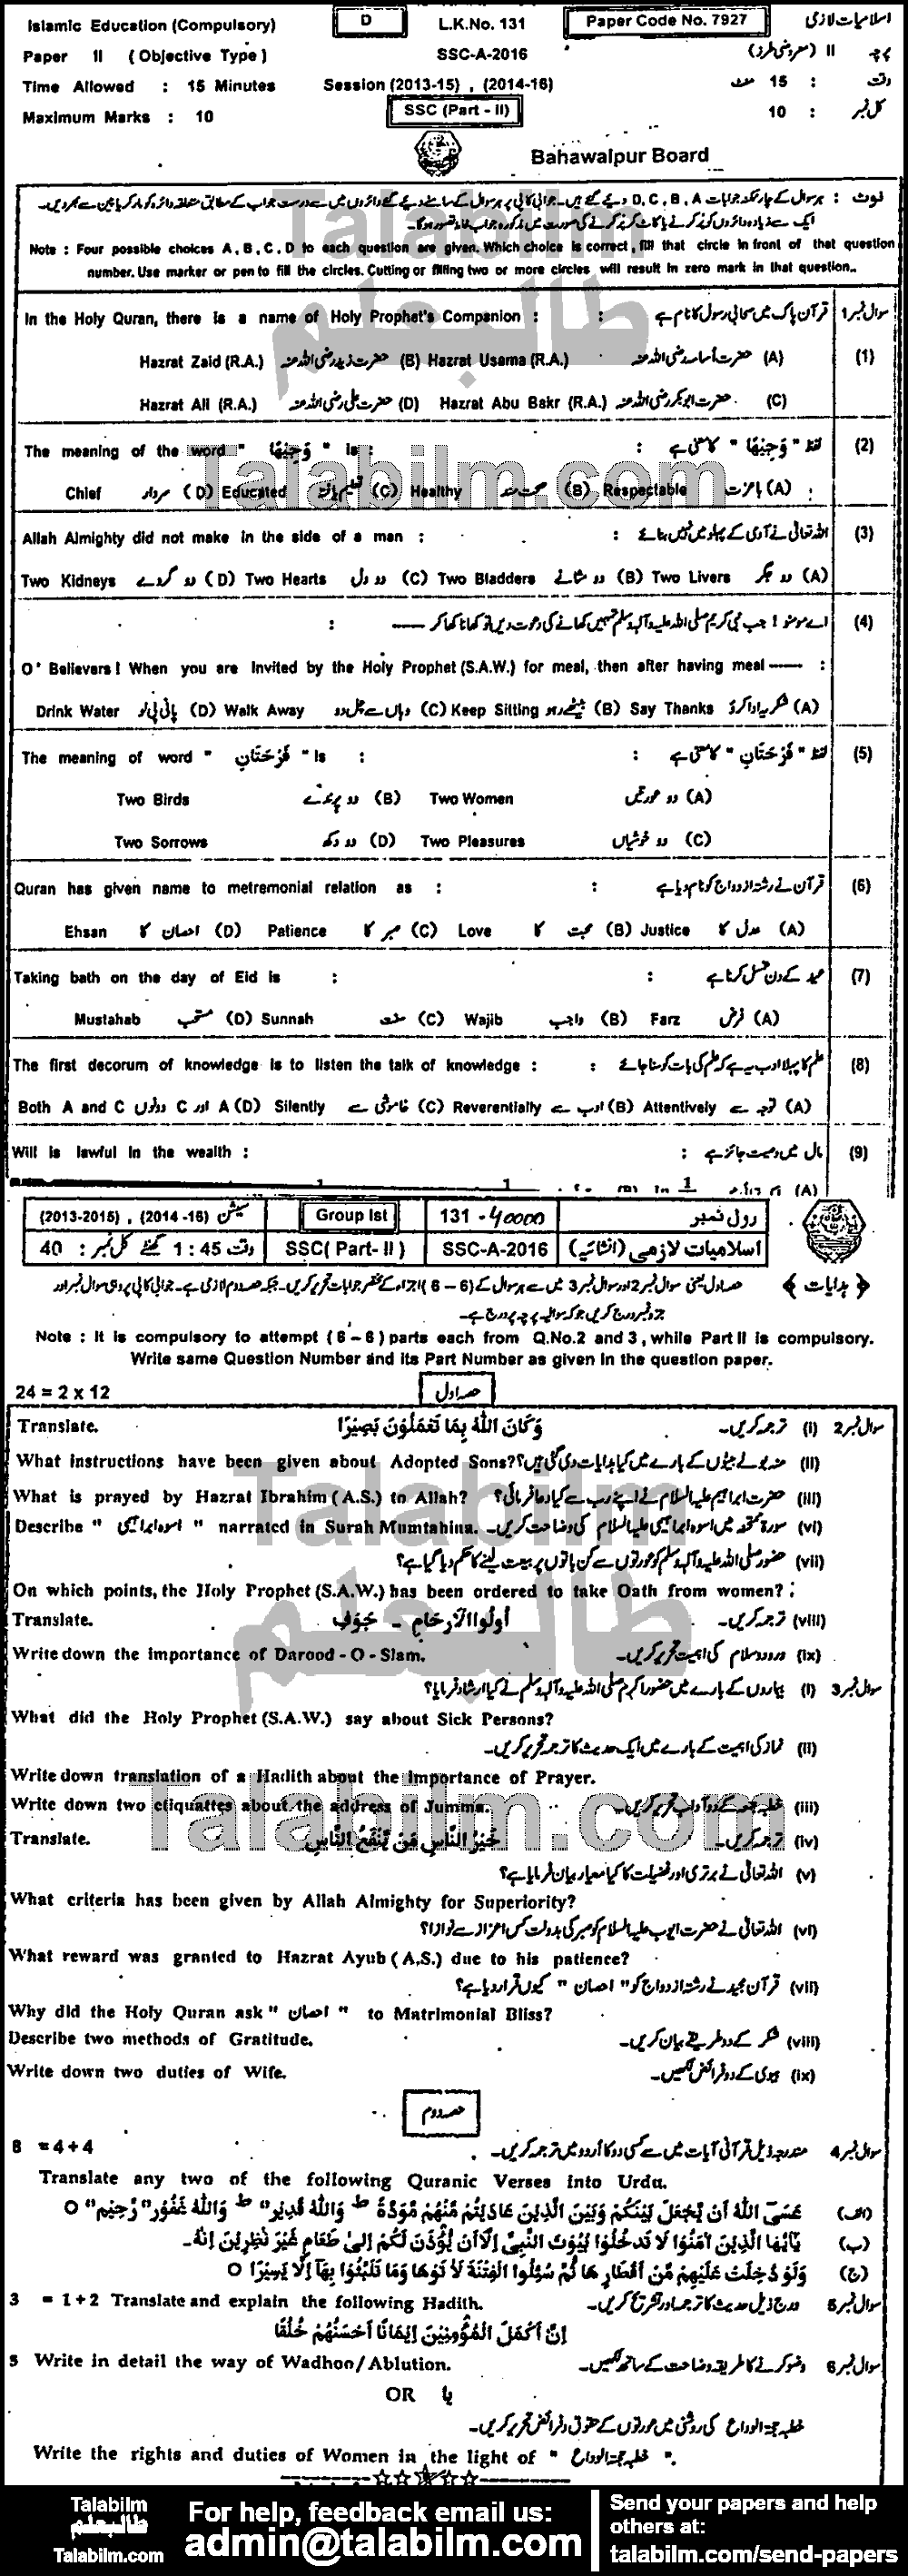 Islamic Education (Compulsory) D L.K.No. 131 Paper Code No. 7927 اسلامیات لازمی
Paper II ( Objective Type ) SSC-A-2016 پرچہ II (معروضی طرز)
Time Allowed : 15 Minutes Session (2013-15) , (2014-16) وقت : 15 منٹ
Maximum Marks : 10 SSC (Part - II) کل نمبر : 10
Bahawalpur Board
نوٹ : ہر سوال کے چار ممکنہ جوابات D, C, B, A دیے گئے ہیں۔ جوابی کاپی پر ہر سوال کے سامنے دیے گئے دائروں میں سے درست جواب کے مطابق متعلقہ دائرہ کو مارکر یا پین سے بھر دیں۔
ایک سے زیادہ دائروں کو پُر کرنے یا کاٹ کر پُر کرنے کی صورت میں مذکورہ جواب غلط تصور ہوگا۔
Note : Four possible choices A , B , C , D to each question are given. Which choice is correct , fill that circle in front of that question
number. Use marker or pen to fill the circles. Cutting or filling two or more circles will result in zero mark in that question..
In the Holy Quran, there is a name of Holy Prophet's Companion : : قرآن پاک میں صحابی رسول کا نام ہے سوال نمبر 1
Hazrat Zaid (R.A.) حضرت زید رضی اللہ عنہ (B) Hazrat Usama (R.A.) حضرت اسامہ رضی اللہ عنہ (A) (1)
Hazrat Ali (R.A.) حضرت علی رضی اللہ عنہ (D) Hazrat Abu Bakr (R.A.) حضرت ابوبکر رضی اللہ عنہ (C)
The meaning of the word " وَجِيْهًا " is : : لفظ " وَجِيْهًا " کا معنی ہے (2)
Chief سردار (D) Educated تعلیم یافتہ (C) Healthy صحت مند (B) Respectable باعزت (A)
Allah Almighty did not make in the side of a man : : اللہ تعالیٰ نے آدمی کے پہلو میں نہیں بنائے (3)
Two Kidneys دو گردے (D) Two Hearts دو دل (C) Two Bladders دو مثانے (B) Two Livers دو جگر (A)
: اے مومنو ! جب نبی کریم صلی اللہ علیہ وآلہ وسلم تمہیں کھانے کی دعوت دیں تو کھانا کھا کر —— (4)
O' Believers ! When you are invited by the Holy Prophet (S.A.W.) for meal, then after having meal —— :
Drink Water پانی پی لو (D) Walk Away وہاں سے چل دو (C) Keep Sitting بیٹھے رہو (B) Say Thanks شکریہ ادا کرو (A)
The meaning of word " فَرْحَتَانِ " is : : لفظ " فَرْحَتَانِ " کا معنی ہے (5)
Two Birds دو پرندے (B) Two Women دو عورتیں (A)
Two Sorrows دو دکھ (D) Two Pleasures دو خوشیاں (C)
Quran has given name to metremonial relation as : : قرآن نے رشتہ ازدواج کو نام دیا ہے (6)
Ehsan احسان کا (D) Patience صبر کا (C) Love محبت کا (B) Justice عدل کا (A)
Taking bath on the day of Eid is : : عید کے دن غسل کرنا ہے (7)
Mustahab مستحب (D) Sunnah سنت (C) Wajib واجب (B) Farz فرض (A)
The first decorum of knowledge is to listen the talk of knowledge : : علم کا پہلا ادب یہ ہے کہ علم کی بات کو سنا جائے (8)
Both A and C دونوں C اور A (D) Silently خاموشی سے (C) Reverentially ادب سے (B) Attentively توجہ سے (A)
Will is lawful in the wealth : : مال میں وصیت جائز ہے (9)
(2013-2015) , (2014 -16) سیشن Group Ist 131 - 40000 رول نمبر
40 : کل نمبر وقت 1 : 45 گھنٹے SSC( Part- II ) SSC-A-2016 اسلامیات لازمی (انشائیہ)
﴿ ہدایات ﴾ حصہ اول یعنی سوال نمبر 2 اور سوال نمبر 3 میں سے ہر سوال کے (6 – 6) اجزاء کے مختصر جوابات تحریر کریں۔ جبکہ حصہ دوم لازمی ہے۔ جوابی کاپی پر وہی سوال نمبر اور
جزو نمبر درج کریں جو کہ سوالیہ پرچہ پر درج ہے۔
Note : It is compulsory to attempt ( 6 – 6 ) parts each from Q.No.2 and 3 , while Part II is compulsory.
Write same Question Number and its Part Number as given in the question paper.
24 = 2 x 12 حصہ اول
Translate. وَكَانَ اللهُ بِمَا تَعْمَلُوْنَ بَصِيْرًا سوال نمبر 2 (i) ترجمہ کریں۔
What instructions have been given about Adopted Sons? منہ بولے بیٹوں کے بارے میں کیا ہدایات دی گئی ہیں؟ (ii)
What is prayed by Hazrat Ibrahim ( A.S.) to Allah? حضرت ابراہیم علیہ السلام نے اپنے رب سے کیا دعا فرمائی؟ (iii)
Describe " اسوہ ابراہیمی " narrated in Surah Mumtahina. سورۃ ممتحنہ میں اسوہ ابراہیمی علیہ السلام کی وضاحت کریں۔ (vi)
حضور صلی اللہ علیہ وآلہ وسلم کو عورتوں سے کن باتوں پر بیعت لینے کا حکم دیا گیا ہے؟ (vii)
On which points, the Holy Prophet (S.A.W.) has been ordered to take Oath from women?
Translate. اُولُوا الْاَرْحَامِ - جَوْفٍ ترجمہ کریں۔ (viii)
Write down the importance of Darood - O - Slam. درود و سلام کی اہمیت تحریر کریں۔ (ix)
سوال نمبر 3 (i) بیماروں کے بارے میں حضور اکرم صلی اللہ علیہ وآلہ وسلم نے کیا ارشاد فرمایا؟
What did the Holy Prophet (S.A.W.) say about Sick Persons?
نماز کی اہمیت کے بارے میں ایک حدیث کا ترجمہ تحریر کریں۔ (ii)
Write down translation of a Hadith about the importance of Prayer.
Write down two etiquattes about the address of Jumma. خطبہ جمعہ کے دو آداب تحریر کریں۔ (iii)
Translate. خَيْرُ النَّاسِ مَنْ يَّنْفَعُ النَّاسَ ترجمہ کریں۔ (iv)
اللہ تعالیٰ نے برتری اور فضیلت کا کیا معیار بیان فرمایا ہے؟ (v)
What criteria has been given by Allah Almighty for Superiority?
اللہ تعالیٰ نے حضرت ایوب علیہ السلام کو صبر کی بدولت کس اعزاز سے نوازا؟ (vi)
What reward was granted to Hazrat Ayub ( A.S.) due to his patience?
قرآن مجید نے رشتہ ازدواج کو " احسان " کیوں قرار دیا ہے؟ (vii)
Why did the Holy Quran ask " احسان " to Matrimonial Bliss?
Describe two methods of Gratitude. شکر کے دو طریقے بیان کریں۔ (viii)
Write down two duties of Wife. بیوی کے دو فرائض لکھیں۔ (ix)
حصہ دوم
8 = 4 + 4 سوال نمبر 4 مندرجہ ذیل قرآنی آیات میں سے کسی دو کا اردو میں ترجمہ کریں۔
Translate any two of the following Quranic Verses into Urdu.
(الف) عَسَى اللهُ اَنْ يَّجْعَلَ بَيْنَكُمْ وَبَيْنَ الَّذِيْنَ عَادَيْتُمْ مِّنْهُمْ مَّوَدَّةً ط وَاللهُ قَدِيْرٌ ط وَاللهُ غَفُوْرٌ رَّحِيْمٌ ○
(ب) يٰاَيُّهَا الَّذِيْنَ اٰمَنُوْا لَا تَدْخُلُوْا بُيُوْتَ النَّبِيِّ اِلَّا اَنْ يُّؤْذَنَ لَكُمْ اِلٰى طَعَامٍ غَيْرَ نٰظِرِيْنَ اِنٰهُ۔
(ج) وَلَوْ دُخِلَتْ عَلَيْهِمْ مِّنْ اَقْطَارِهَا ثُمَّ سُئِلُوا الْفِتْنَةَ لَاٰتَوْهَا وَمَا تَلَبَّثُوْا بِهَا اِلَّا يَسِيْرًا ○
3 = 1 + 2 Translate and explain the following Hadith. سوال نمبر 5 درج ذیل حدیث کا ترجمہ اور تشریح کریں۔
اِنَّ اَكْمَلَ الْمُؤْمِنِيْنَ اِيْمَانًا اَحْسَنُهُمْ خُلُقًا
5 Write in detail the way of Wadhoo / Ablution. سوال نمبر 6 وضو کرنے کا طریقہ وضاحت کے ساتھ لکھیں۔
OR یا
خطبہ حجۃ الوداع کی روشنی میں عورتوں کے حقوق و فرائض تحریر کریں۔
Write the rights and duties of Women in the light of " خطبہ حجۃ الوداع ".
Talabilm
طالبعلم
Talabilm.com
For help, feedback email us:
admin@talabilm.com
Send your papers and help
others at:
talabilm.com/send-papers